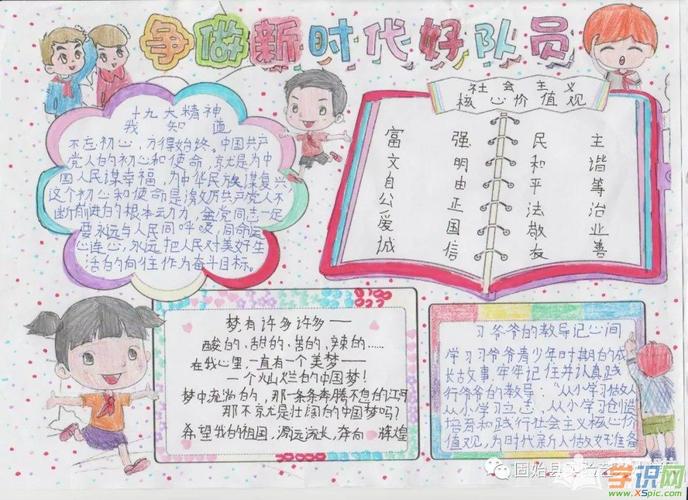 争做新时代好队员
十九大精神
我知道
不忘初心,方得始终,中国共产
党人的初心和使命,就是为中
国人民谋幸福,为中华民族谋复兴
这个初心和使命是激励共产党人不
断前进的根本动力,全党同志一定
要永远与人民同呼吸,同命运
心连心,永远把人民对美好生
活的向往作为奋斗目标.
社会主义
核心价值观
富 强 民 主
文 明 和 谐
自 由 平 等
公 正 法 治
爱 国 敬 业
诚 信 友 善
梦有许多许多——
酸的、甜的、苦的、辣的……
在我心里,一直有一个美梦——
一个灿烂的中国梦!
梦中龙的,那一条条奔腾不息的江河
那不就是壮阔的中国梦吗?
希望我的祖国,源远流长,奔向辉煌
习爷爷的教导记心间
学习习爷爷青少年时期的成
长故事,牢牢记住并认真践
行爷爷的教导:“从小学习做人
从小学习立志,从小学习创造
培育和践行社会主义核心价
值观,为时代新人做好准备
固始县
学识网
www.xspic.com